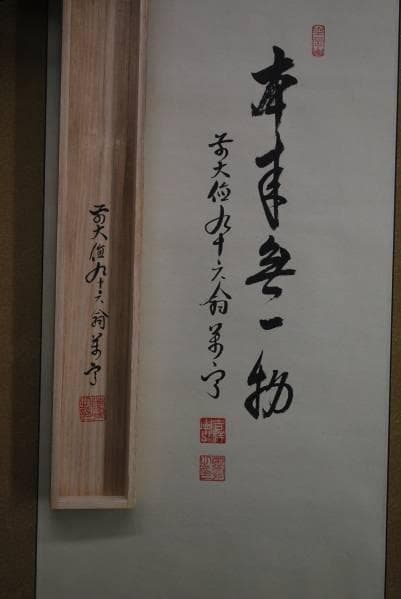 本来無一物
前大徳九十六翁萬寧
前大徳九十六翁萬寧